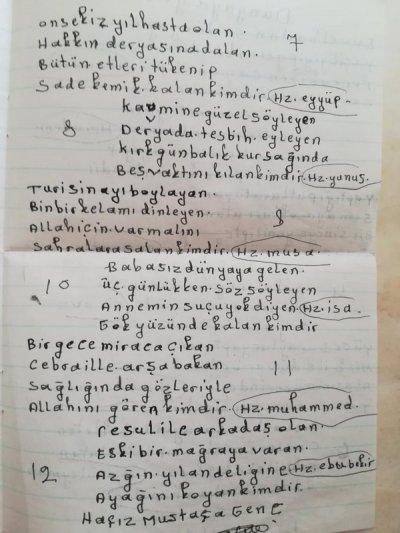 onsekiz yıl hasta olan.
Hakkın deryasına dalan. 7
Bütün etleri tükenip
Sade kemik kalan kimdir. Hz. eyyüp.
kavmine güzel söyleyen
8 Deryada tesbih eyleyen
kırk gün balık kursağında
Beş vaktını kılan kimdir. Hz. yunus.
Turi sinayi boylayan.
Binbir kelamı dinleyen. 9
Allah için varmalını
Sahralara salan kimdir. Hz. musa.
Babasız dünyaya gelen.
10 üç günlükken söz söyleyen
Annemin suçu yok diyen Hz. isa.
Gök yüzünde kalan kimdir
Bir gece miraca çıkan
Cebraille arşa bakan 11
Sağlığında gözleriyle
Allahını gören kimdir. Hz. muhammed.
resul ile arkadaş olan.
Eski bir mağraya varan.
12 Azgın yılan deligine Hz. ebubekir
Ayağını koyan kimdir.
Hafız Mustafa Genç